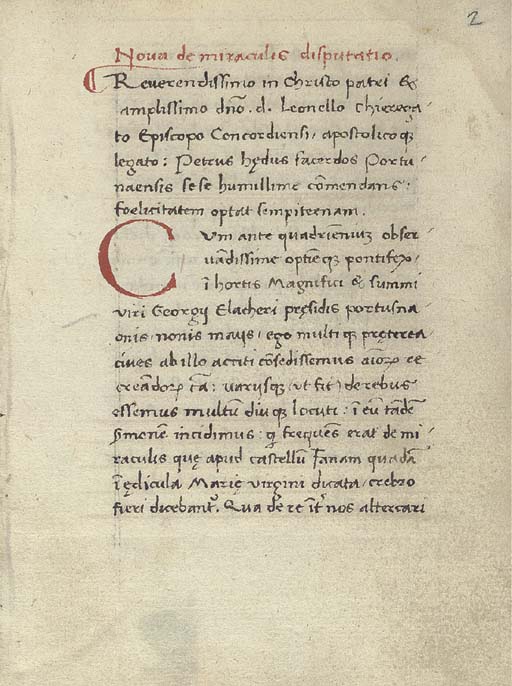 2
Nova de miraculis disputatio.
Reverendissimo in Christo patri &
amplissimo dño. d. Leonello Chierega-
to Episcopo Concordiensi, apostolicoq̧
legato: Petrus hędus sacerdos Portu-
naensis sese humillime cōmendans:
foelicitatem optat sempiternam.
Cum ante quadrienniuȝ obser-
vādissime optīeq̧ pontifex,
ī hortis Magnifici & summi
viri Georgij Elacheri pręsidis portusna-
onis, nonis maijs, ego multiq̧ pręterea
cives ab illo acciti cōsedissemus aīorꝝ et
creādorꝝ cā: varijsq̧ (ut fit) de rebus
essemus multū diuq̧ locuti: ī eū tādē
sermonē incidimus: qͥ frequēs erat de mi-
raculis quę apud castellū Fanam quadā
ī ędicula Marię virgini dicata, crebro
fieri dicebant᷑. Qua de re īt᷑ nos altercari